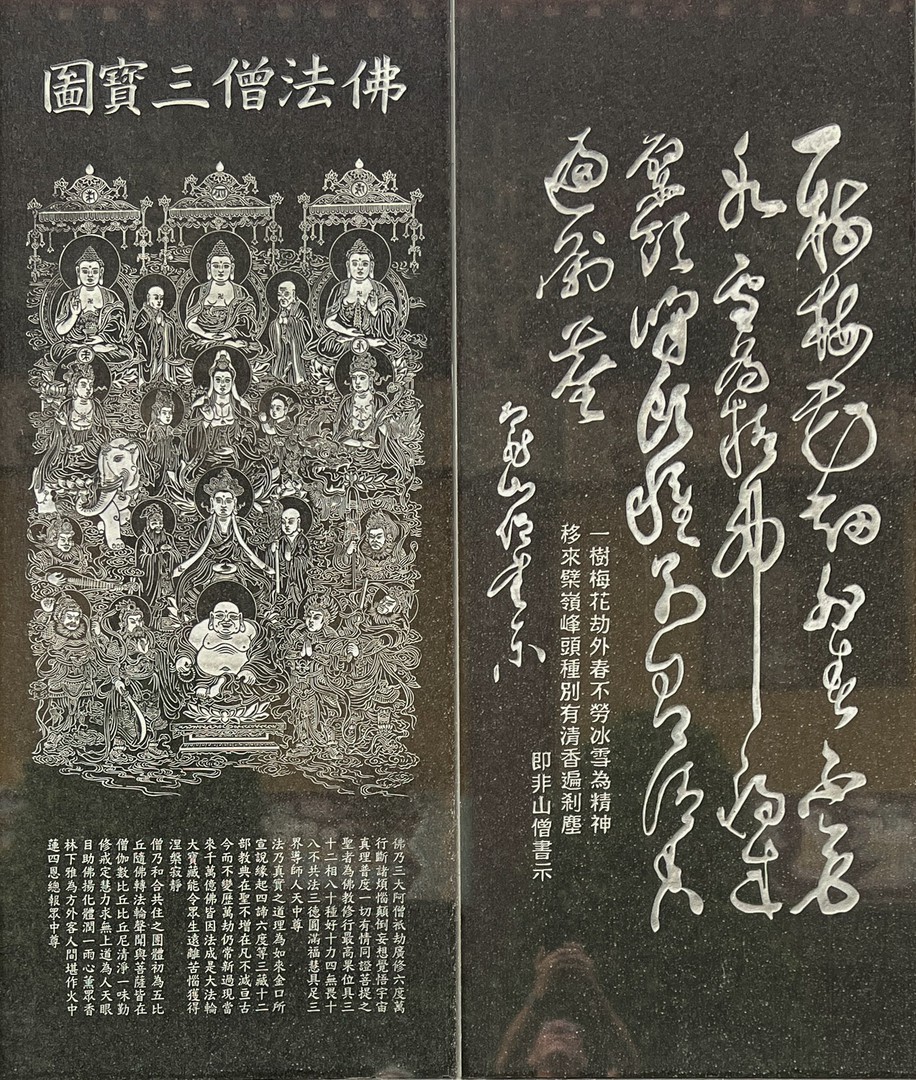 一樹梅花劫外春不勞
冰雪為精神移來
檗嶺峰頭種別有清香
遍剎塵
即非山僧書示
一樹梅花劫外春不勞冰雪為精神
移來檗嶺峰頭種別有清香遍剎塵
即非山僧書示
佛法僧三寶圖
佛乃三大阿僧祇劫廣修六度萬
行斷諸煩惱顛倒妄想覺悟宇宙
真理普度一切有情同證菩提之
聖者為佛教修行最高果位具三
十二相八十種好十力四無畏十
八不共法三德圓滿福慧具足三
界導師人天中尊
法乃真實之道理為如來金口所
宣說緣起四諦六度等三藏十二
部教典在聖不增在凡不減亘古
今而不變歷萬劫仍常新過現當
來千萬億佛皆因法成是大法輪
大寶藏能令眾生遠離苦惱獲得
涅槃寂靜
僧乃和合共住之團體初為五比
丘隨佛轉法輪聲聞與菩薩皆在
僧伽數比丘比丘尼清淨一味勤
修戒定慧力求無上道為人天眼
目助佛揚化體潤一雨心薰眾香
林下雅為方外客人間堪作火中
蓮四恩總報眾中尊